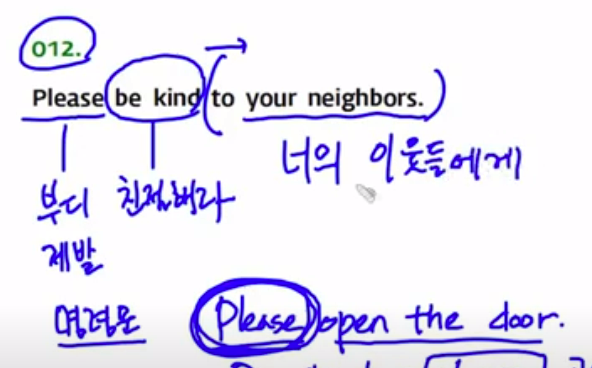 012.
Please be kind to your neighbors.
너의 이웃들에게
부디 친절해라
제발
명령문 Please open the door.